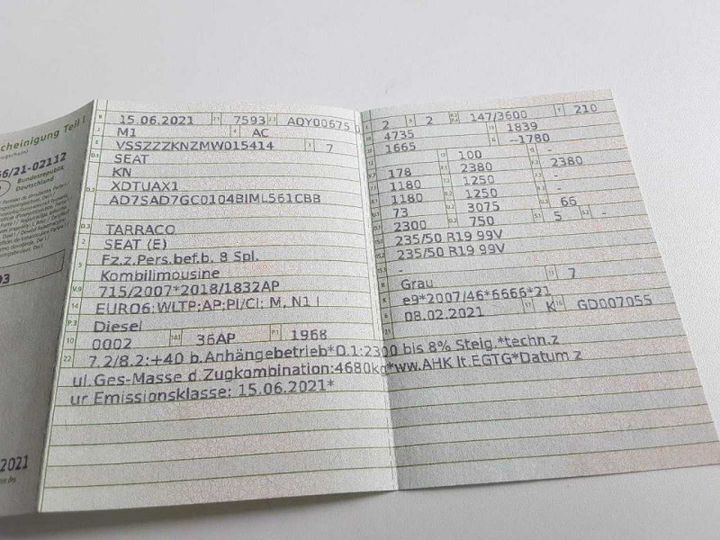 cheinigung Teil I
66/21-02112
Bundesrepublik
Deutschland
93
2021
15.06.2021 7593 AQY00675 0
M1 AC
VSSZZZKNZMW015414 7
SEAT
KN
XDTUAX1
AD7SAD7GC0104BIML561CBB
TARRACO
SEAT (E)
Fz.z.Pers.bef.b. 8 Spl.
Kombilimousine
715/2007*2018/1832AP
EURO6;WLTP;AP;PI/CI; M, N1 I
Diesel
0002 36AP 1968
2 2 147/3600 210
4735 1839
1665 -1780
100 -
178 2380 2380
1180 1250 -
1180 1250 -
73 3075 66
2300 750 5 -
235/50 R19 99V
235/50 R19 99V
-
Grau 7
e9*2007/46*6666*21
08.02.2021 K GD007055
22 7.2/8.2:+40 b.Anhängebetrieb*O.1:2300 bis 8% Steig.*techn.z
ul.Ges-Masse d.Zugkombination:4680kg*ww.AHK lt.EGTG*Datum z
ur Emissionsklasse: 15.06.2021*